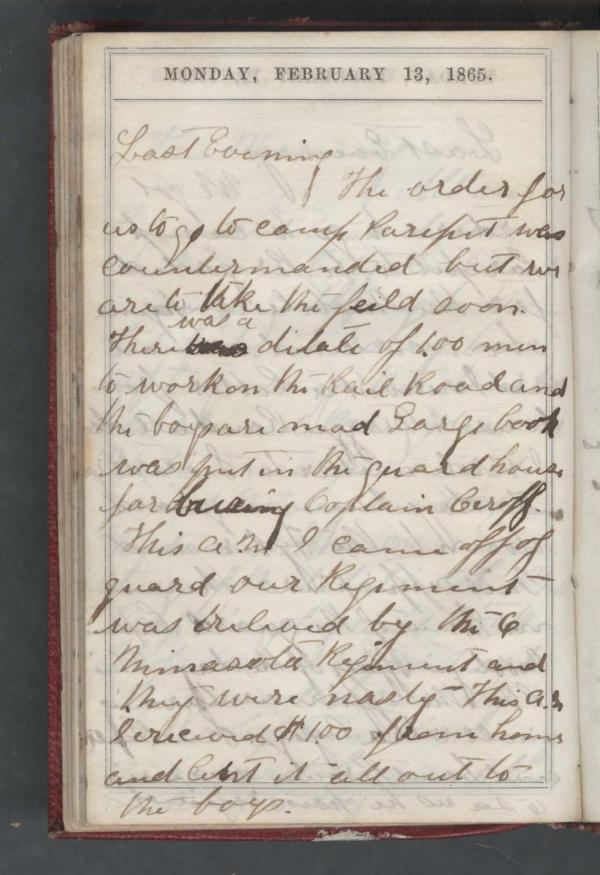 MONDAY, FEBRUARY 13, 1865.
Last Evening
The order for
us to go to camp Parepit was
countermanded but we
are to take the feild soon.
was a
There ditate of 1.00 men
to work on the Rail Road and
the boys are mad Larg book
was put in the guard house
for Captain
This a.m I came off of
guard our Regiment
was relieved by the 6
Minnasota Regiment and
they were nasty This a.m
I recieved $1.00 from home
and lent it all out to
the boys.